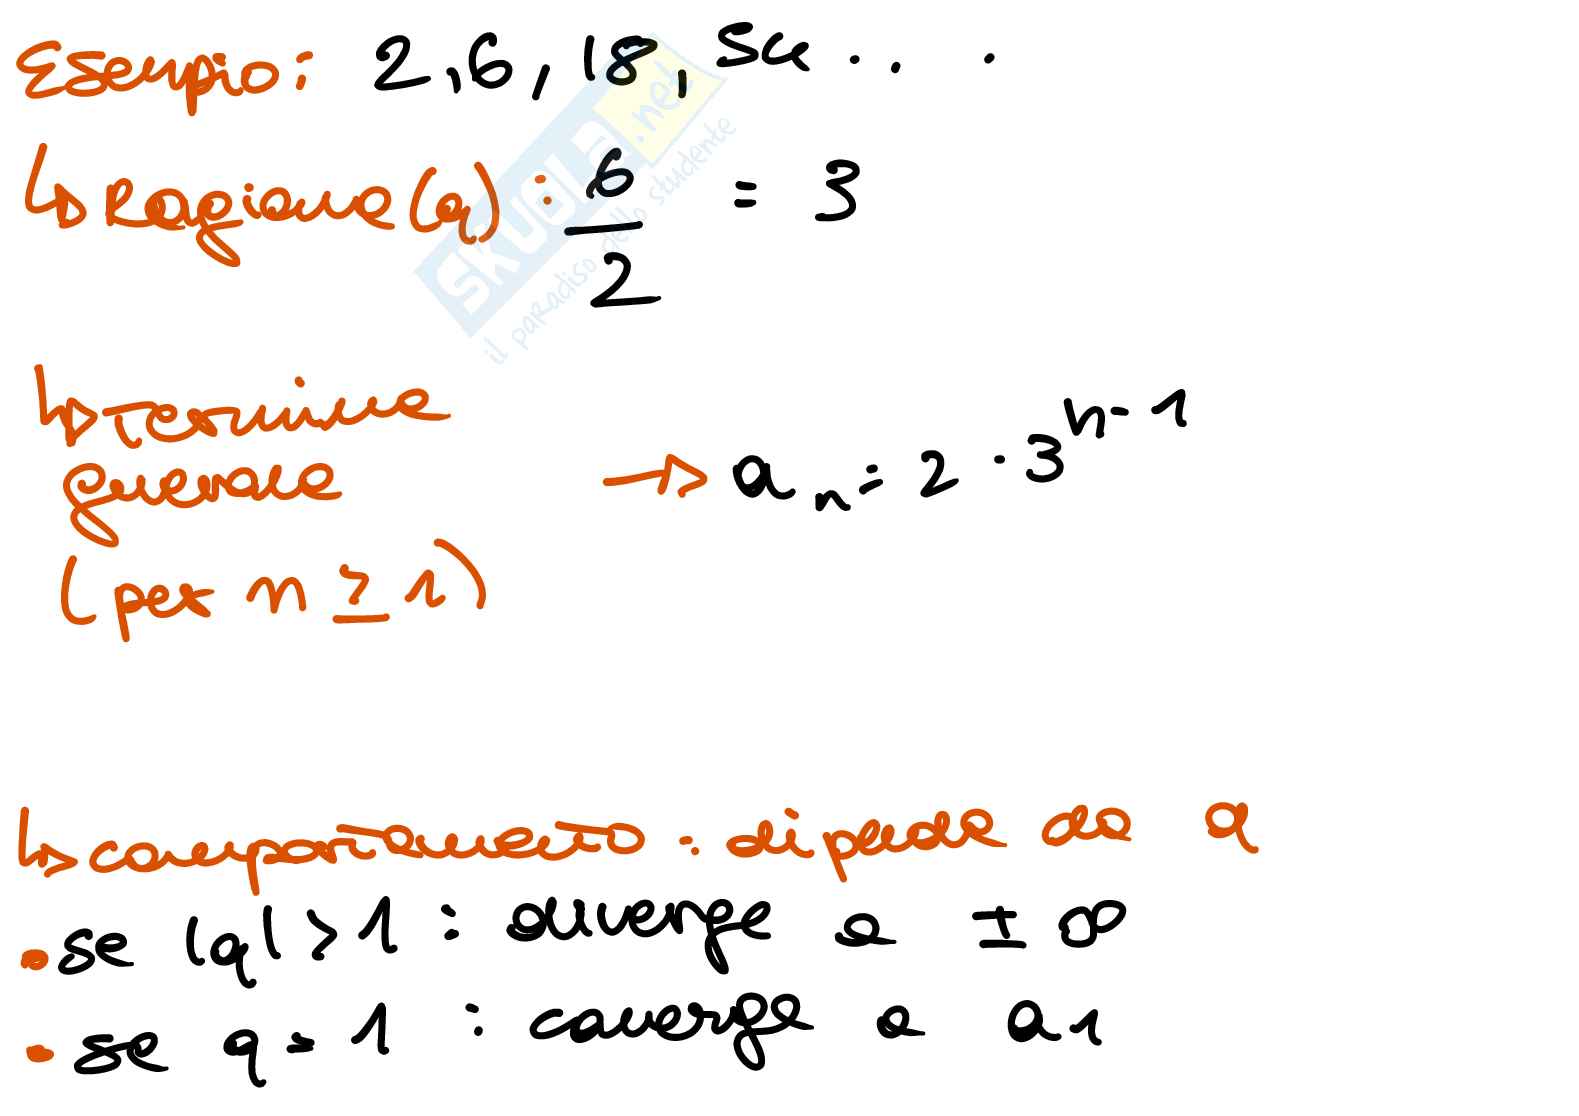 Esempio: 2, 6, 18, 54 . . .
↳ Ragione (q) : 6/2 = 3
↳ Termine
generale → aₙ = 2 · 3ⁿ⁻¹
(per n ≥ 1)
↳ comportamento : dipende da q
• se |q| > 1 : diverge a ± ∞
• se q = 1 : converge a a₁
SKUOLA.net
il paradiso dello studente